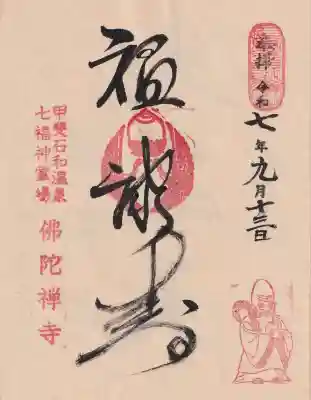 奉拝 令和七年九月十三日
福禄寿
甲斐石和温泉
七福神霊場
佛陀禅寺